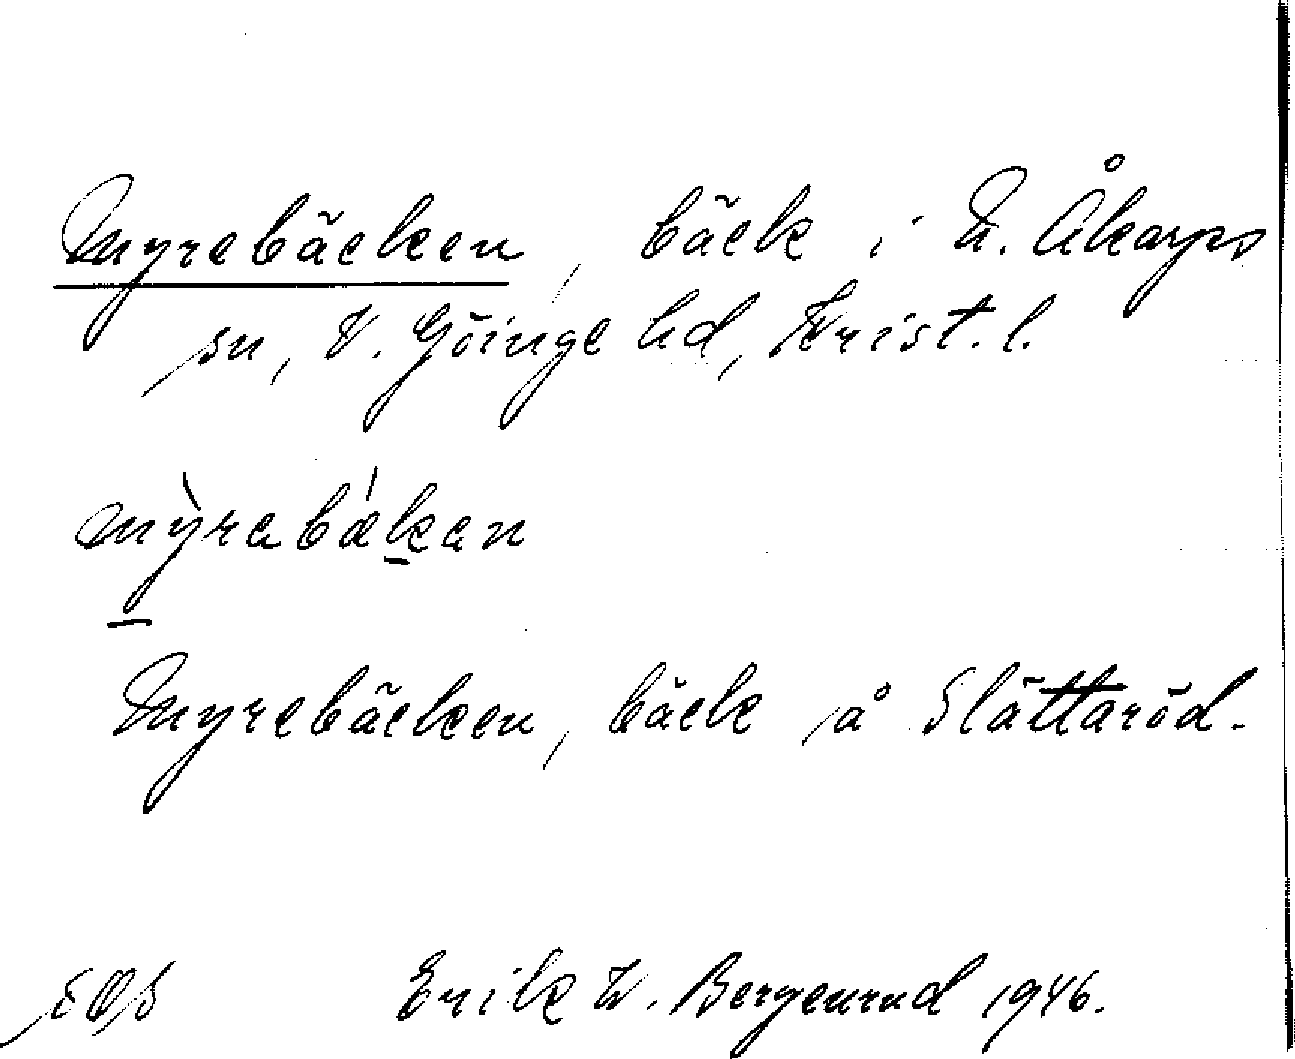 Myrebäcken, bäck i N. Åkarps
sn, V. Göinge hd, Krist. l.
mỳrabǽkan
Myrebäcken, bäck på Slättaröd.
Erik W. Bergenrud 1946.